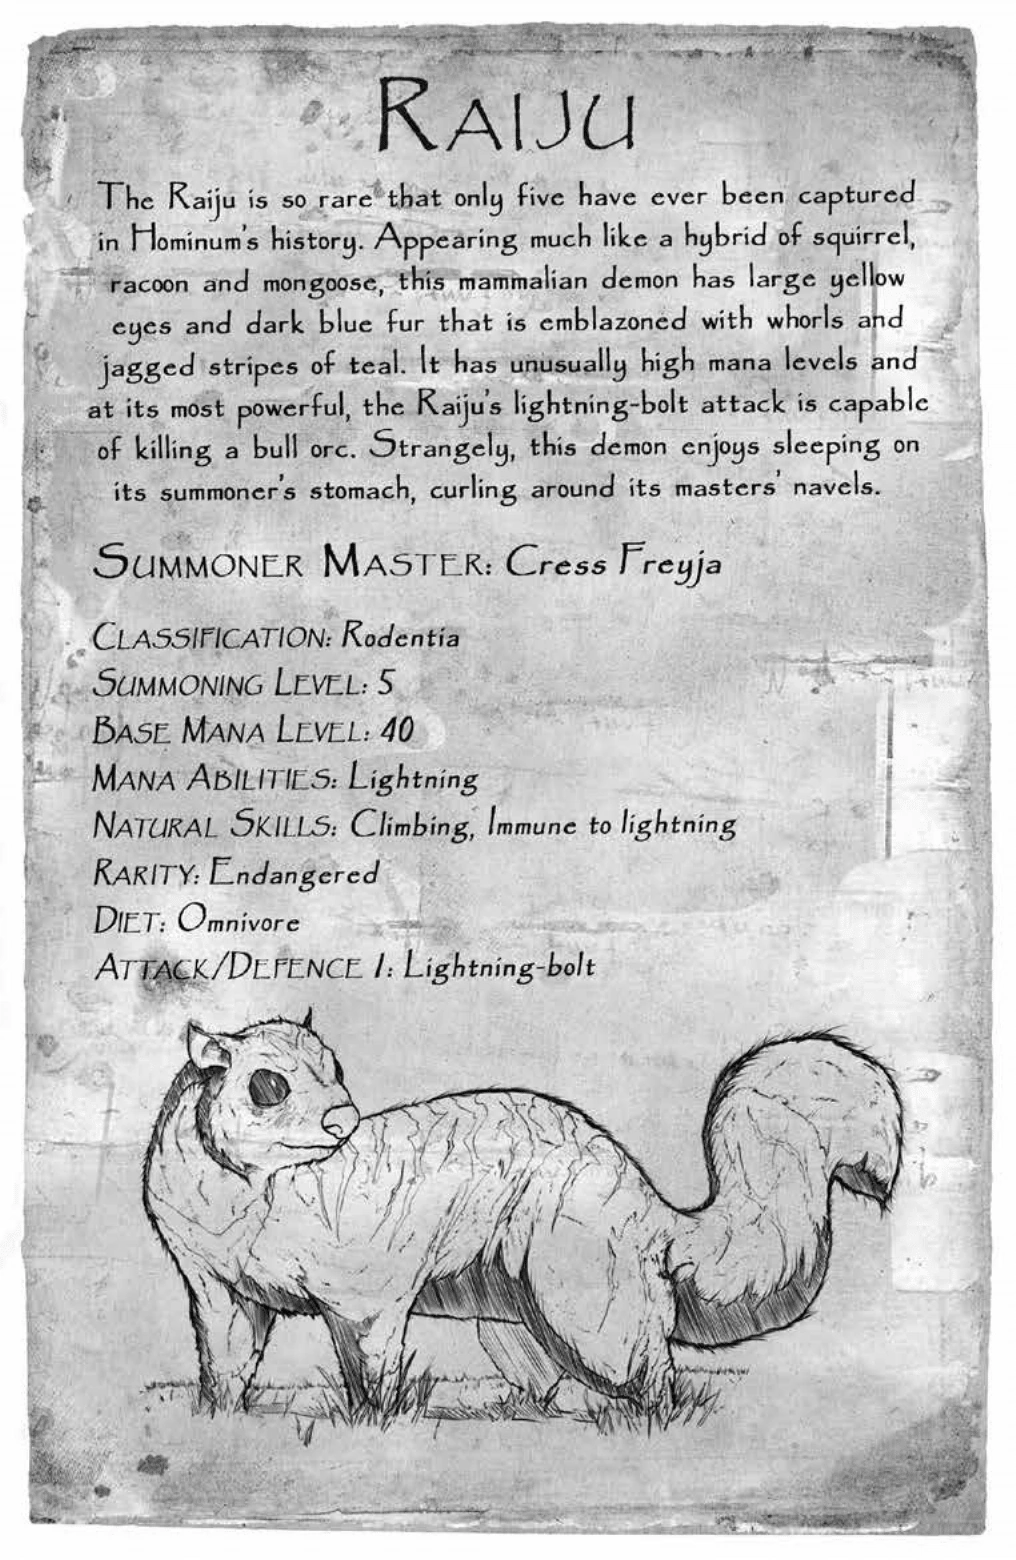 RAIJU
The Raiju is so rare that only five have ever been captured
in Hominum's history. Appearing much like a hybrid of squirrel,
racoon and mongoose, this mammalian demon has large yellow
eyes and dark blue fur that is emblazoned with whorls and
jagged stripes of teal. It has unusually high mana levels and
at its most powerful, the Raiju's lightning-bolt attack is capable
of killing a bull orc. Strangely, this demon enjoys sleeping on
its summoner's stomach, curling around its masters' navels.
SUMMONER MASTER: Cress Freyja
CLASSIFICATION: Rodentia
SUMMONING LEVEL: 5
BASE MANA LEVEL: 40
MANA ABILITIES: Lightning
NATURAL SKILLS: Climbing, Immune to lightning
RARITY: Endangered
DIET: Omnivore
ATTACK/DEFENCE 1: Lightning-bolt